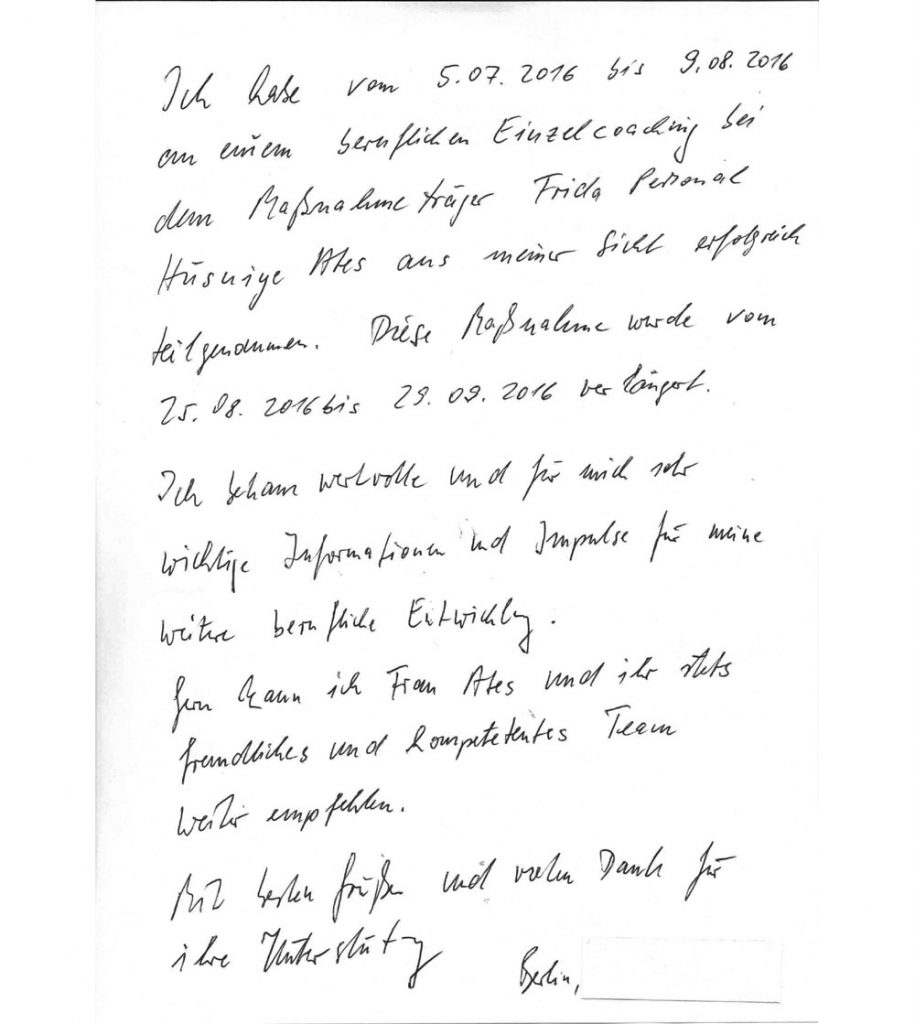 Ich habe vom 5.07.2016 bis 9.08.2016
an einem beruflichen Einzelcoaching bei
dem Maßnahmeträger Frida Personal
Hüsniye Ates aus meiner Sicht erfolgreich
teilgenommen. Diese Maßnahme wurde vom
25.08.2016 bis 29.09.2016 verlängert.
Ich bekam wertvolle und für mich sehr
wichtige Informationen und Impulse für meine
weitere berufliche Entwicklung.
Gern kann ich Frau Ates und ihr stets
freundliches und kompetentes Team
weiter empfehlen.
Mit besten Grüßen und vielen Dank für
ihre Unterstützung
Berlin,